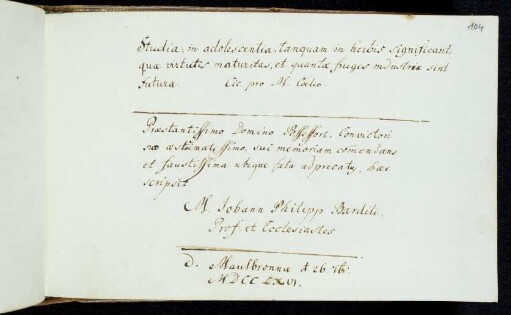 104
Studia, in adolescentia, tanquam in herbis significant,
quæ virtutis maturitas, et quantæ fruges industriæ sint
futuræ. Cic. pro M. Cœlio
Præstantissimo Domino Possessori, Convictori
suo æstumatissimo, sui memoriam comendans
et faustissima ubique fata adprecatus, hæc
scripsit
M. Johann Philipp Bardili,
Prof. et Ecclesiastes
d. Maulbronnæ d 26
MDCCLXVI.